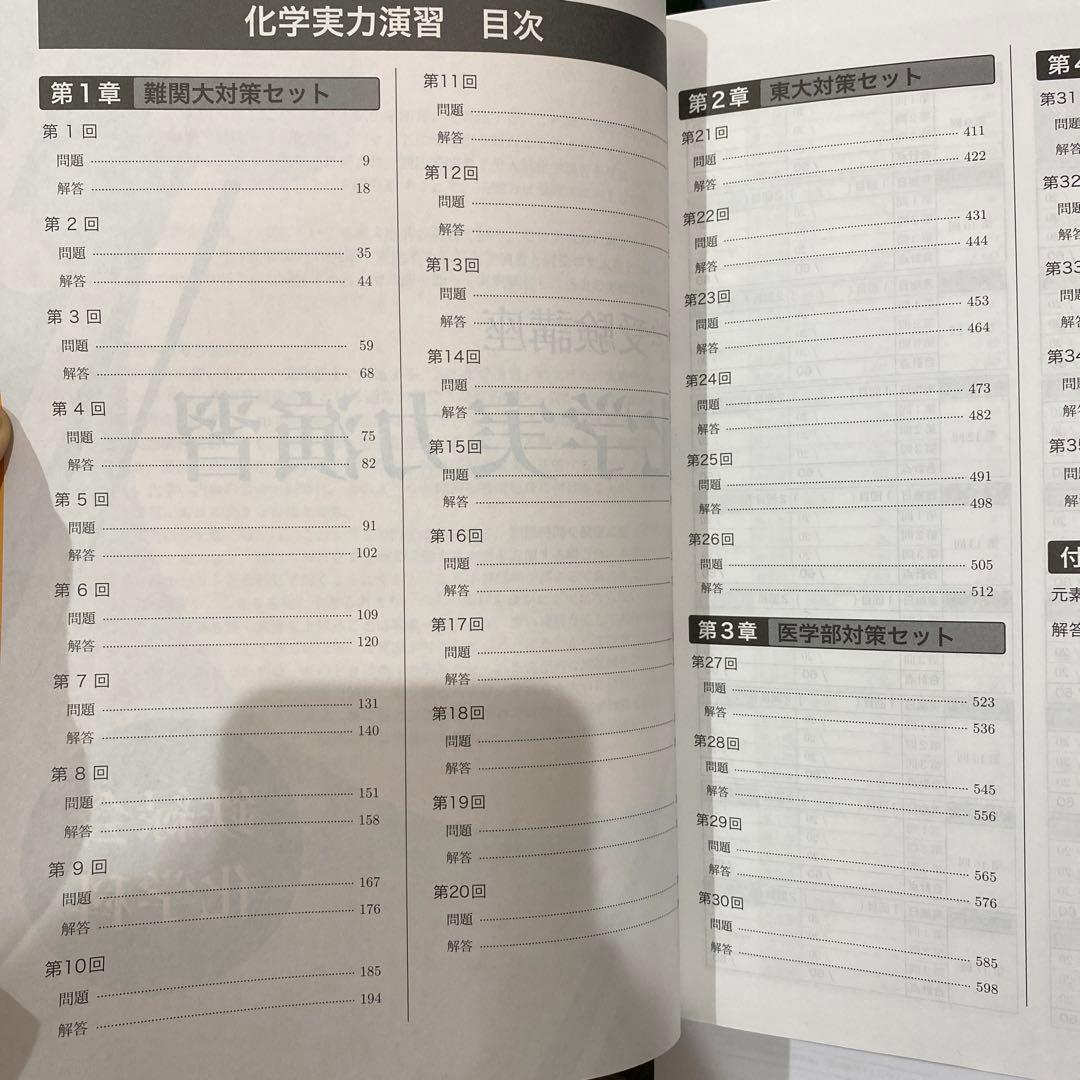 化学実力演習 目次
第1章 難関大対策セット
第1回
問題 9
解答 18
第2回
問題 35
解答 44
第3回
問題 59
解答 68
第4回
問題 75
解答 82
第5回
問題 91
解答 102
第6回
問題 109
解答 120
第7回
問題 131
解答 140
第8回
問題 151
解答 158
第9回
問題 167
解答 176
第10回
問題 185
解答 194
第11回
問題
解答
第12回
問題
解答
第13回
問題
解答
第14回
問題
解答
第15回
問題
解答
第16回
問題
解答
第17回
問題
解答
第18回
問題
解答
第19回
問題
解答
第20回
問題
解答
第2章 東大対策セット
第21回
問題 411
解答 422
第22回
問題 431
解答 444
第23回
問題 453
解答 464
第24回
問題 473
解答 482
第25回
問題 491
解答 498
第26回
問題 505
解答 512
第3章 医学部対策セット
第27回
問題 523
解答 536
第28回
問題 545
解答 556
第29回
問題 565
解答 576
第30回
問題 585
解答 598
第4
第31
問題
解答
第32
問題
解答
第33
問題
解答
第34
問題
解答
第35
問題
解答
付
元素
解答